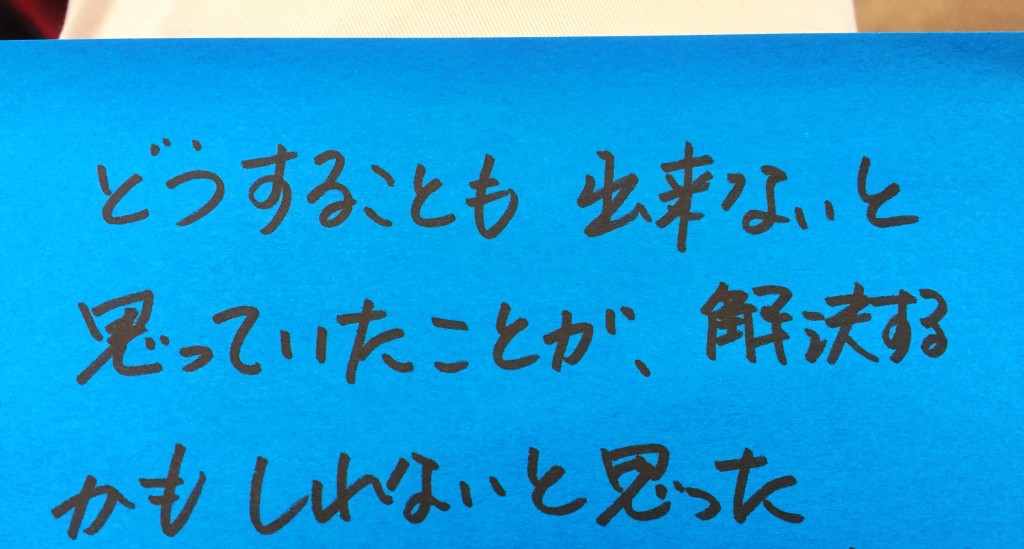 どうすることも出来ないと
思っていたことが、解決する
かもしれないと思った